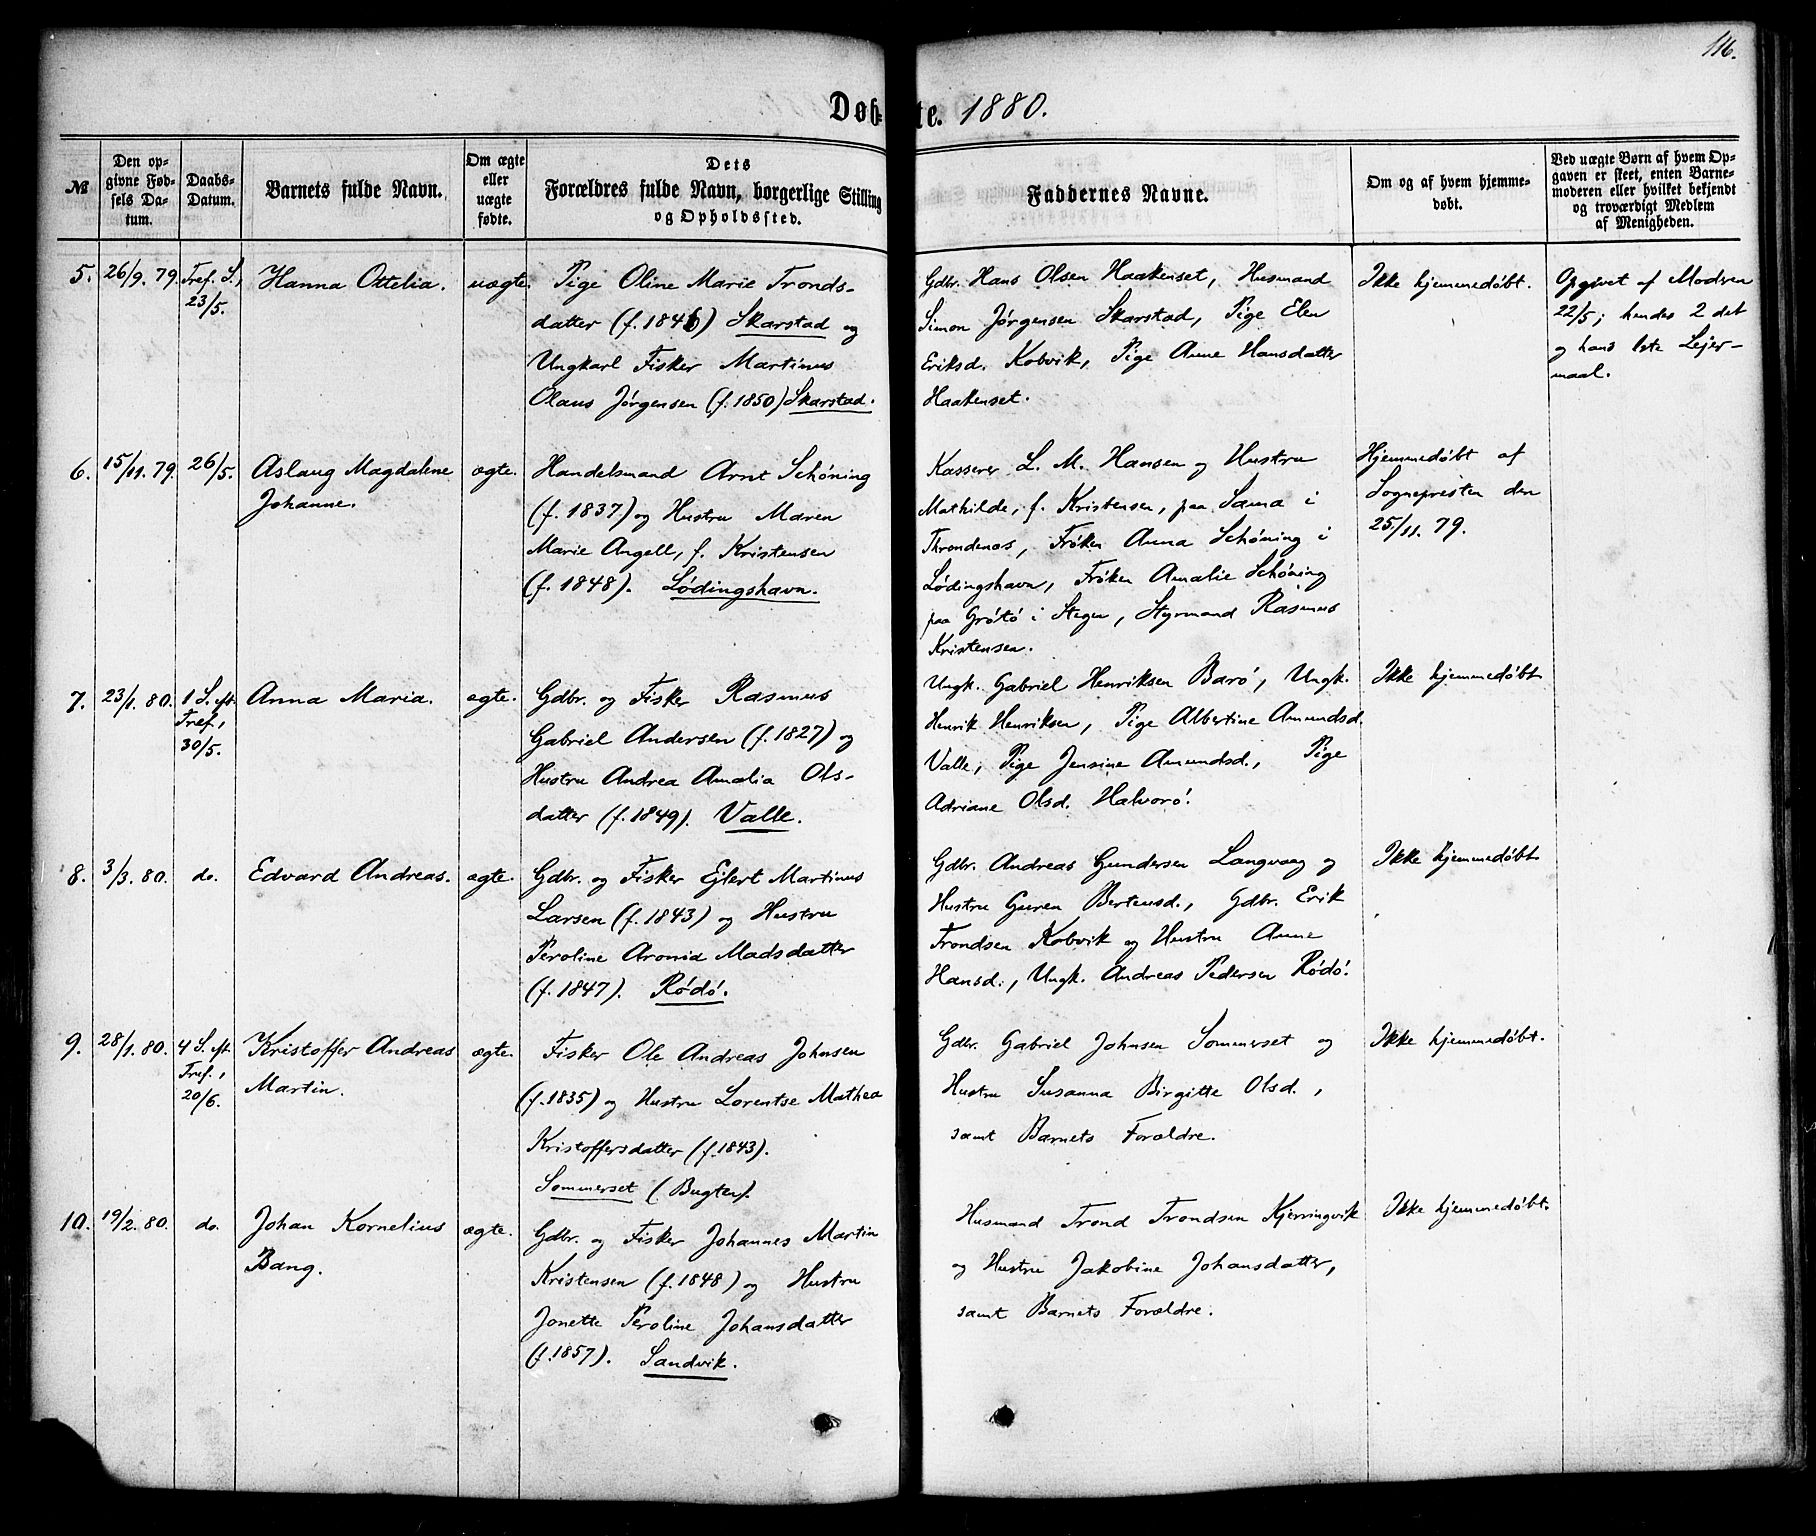 116.
Døbte. 1880.
№
Den op-
givne Fød-
sels Da-
tum.
Daabs-
Datum.
Barnets fulde Navn.
Om ægte
eller
uægte
fødte.
Dets
Forældres fulde Navn, borgerlige Stilling
og Opholdssted.
Faddernes Navne.
Om og af hvem hjemme-
døbt.
Ved uægte Børn af hvem Op-
gaven er skeet, enten Barne-
moderen eller hvilket bekjendt
og troværdigt Medlem
af Menigheden.
5.
26/9. 79.
Tref. S.,
23/5.
Hanna Ottelia.
uægte.
Pige Oline Marie Tronds-
datter (f. 1846) Skarstad og
Ungkarl Fisker Martinus
Olaus Jørgensen (f. 1850) Skarstad.
Gdbr. Hans Olsen Haakenset, Husmand
Simon Jørgensen Skarstad, Pige Elen
Eriksd. Kobvik, Pige Anne Hansdatter
Haakenset.
Ikke hjemmedøbt.
Opgivet af Modren
22/5; hendes 2det
og hans 1ste Lejer-
maal.
6.
15/11. 79.
26/5.
Aslaug Magdalene
Johanne.
ægte.
Handelsmand Arnt Schøning
(f. 1837) og Hustru Maren
Marie Angell, f. Kristensen
(f. 1848). Lødingshavn.
Kasserer L. M. Hansen og Hustru
Mathilde, f. Kristensen, paa Sama i
Throndenæs, Frøken Anna Schøning i
Lødingshavn, Frøken Amalie Schøning
paa Grøtø i Stegen, Styrmand Rasmus
Kristensen.
Hjemmedøbt af
Sognepresten den
25/11. 79.
7.
23/1. 80.
1 S. eft.
Tref.,
30/5.
Anna Maria.
ægte.
Gdbr. og Fisker Rasmus
Gabriel Andersen (f. 1827) og
Hustru Andrea Amalia Ols-
datter (f. 1849). Valle.
Ungk. Gabriel Henriksen Barø, Ungk.
Henrik Henriksen, Pige Albertine Amundsd.
Valle, Pige Jensine Amundsd., Pige
Adriane Olsd. Halvorø.
Ikke hjemmedøbt.
8.
3/3. 80.
do.
Edvard Andreas.
ægte.
Gdbr. og Fisker Ejlert Martinus
Larsen (f. 1843) og Hustru
Peroline Aronia Madsdatter
(f. 1847). Rødø.
Gdbr. Andreas Gundersen Langvaag og
Hustru Guren Bertensd., Gdbr. Erik
Trondsen Kobvik og Hustru Anne
Hansd., Ungk. Andreas Pedersen Rødø.
Ikke hjemmedøbt.
9.
28/1. 80.
4 S. eft.
Tref.,
20/6.
Kristoffer Andreas
Martin.
ægte.
Fisker Ole Andreas Johnsen
(f. 1835) og Hustru Lorentse Mathea
Kristoffersdatter (f. 1843).
Sommerset (Bugten).
Gdbr. Gabriel Johnsen Sommerset og
Hustru Susanna Birgitte Olsd.,
samt Barnets Forældre.
Ikke hjemmedøbt.
10.
19/2. 80.
do.
Johan Kornelius
Bang.
ægte.
Gdbr. og Fisker Johannes Martin
Kristensen (f. 1848) og Hustru
Jonette Peroline Johansdatter
(f. 1857). Sandvik.
Husmand Trond Trondsen Kjerringvik
og Hustru Jakobine Johansdatter,
samt Barnets Forældre.
Ikke hjemmedøbt.